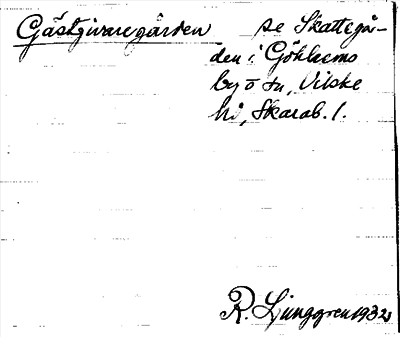 Gästgivaregården se Skattegå-
den i Göklaems
by o sn, Vilske
hd, Skarab. l.
R. Ljunggren 1932